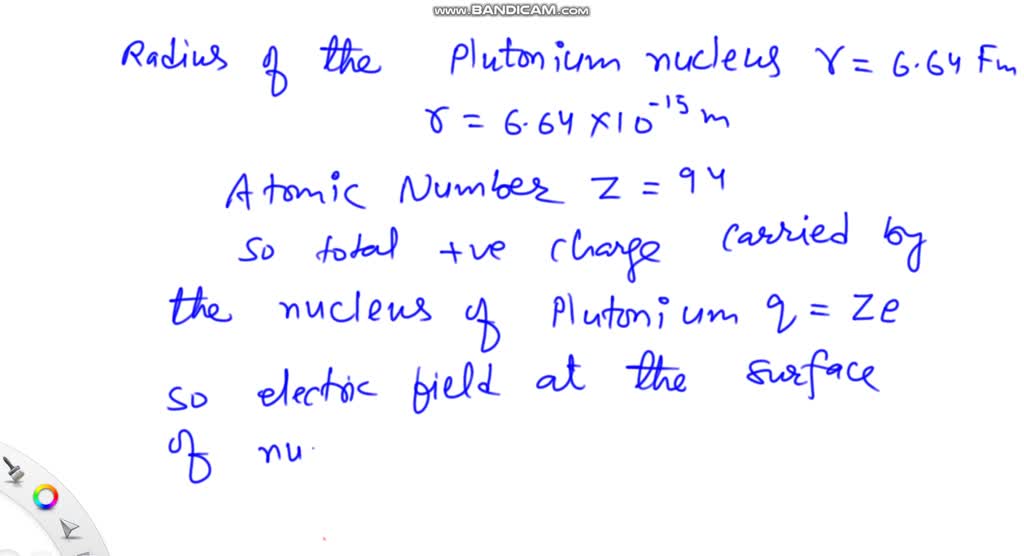 www.BANDICAM.com
Radius of the Plutonium nucleus r = 6.64 Fm
r = 6.64 × 10⁻¹⁵ m
Atomic Number Z = 94
So total +ve charge carried by
the nucleus of Plutonium q = Ze
so electric field at the surface
of nu